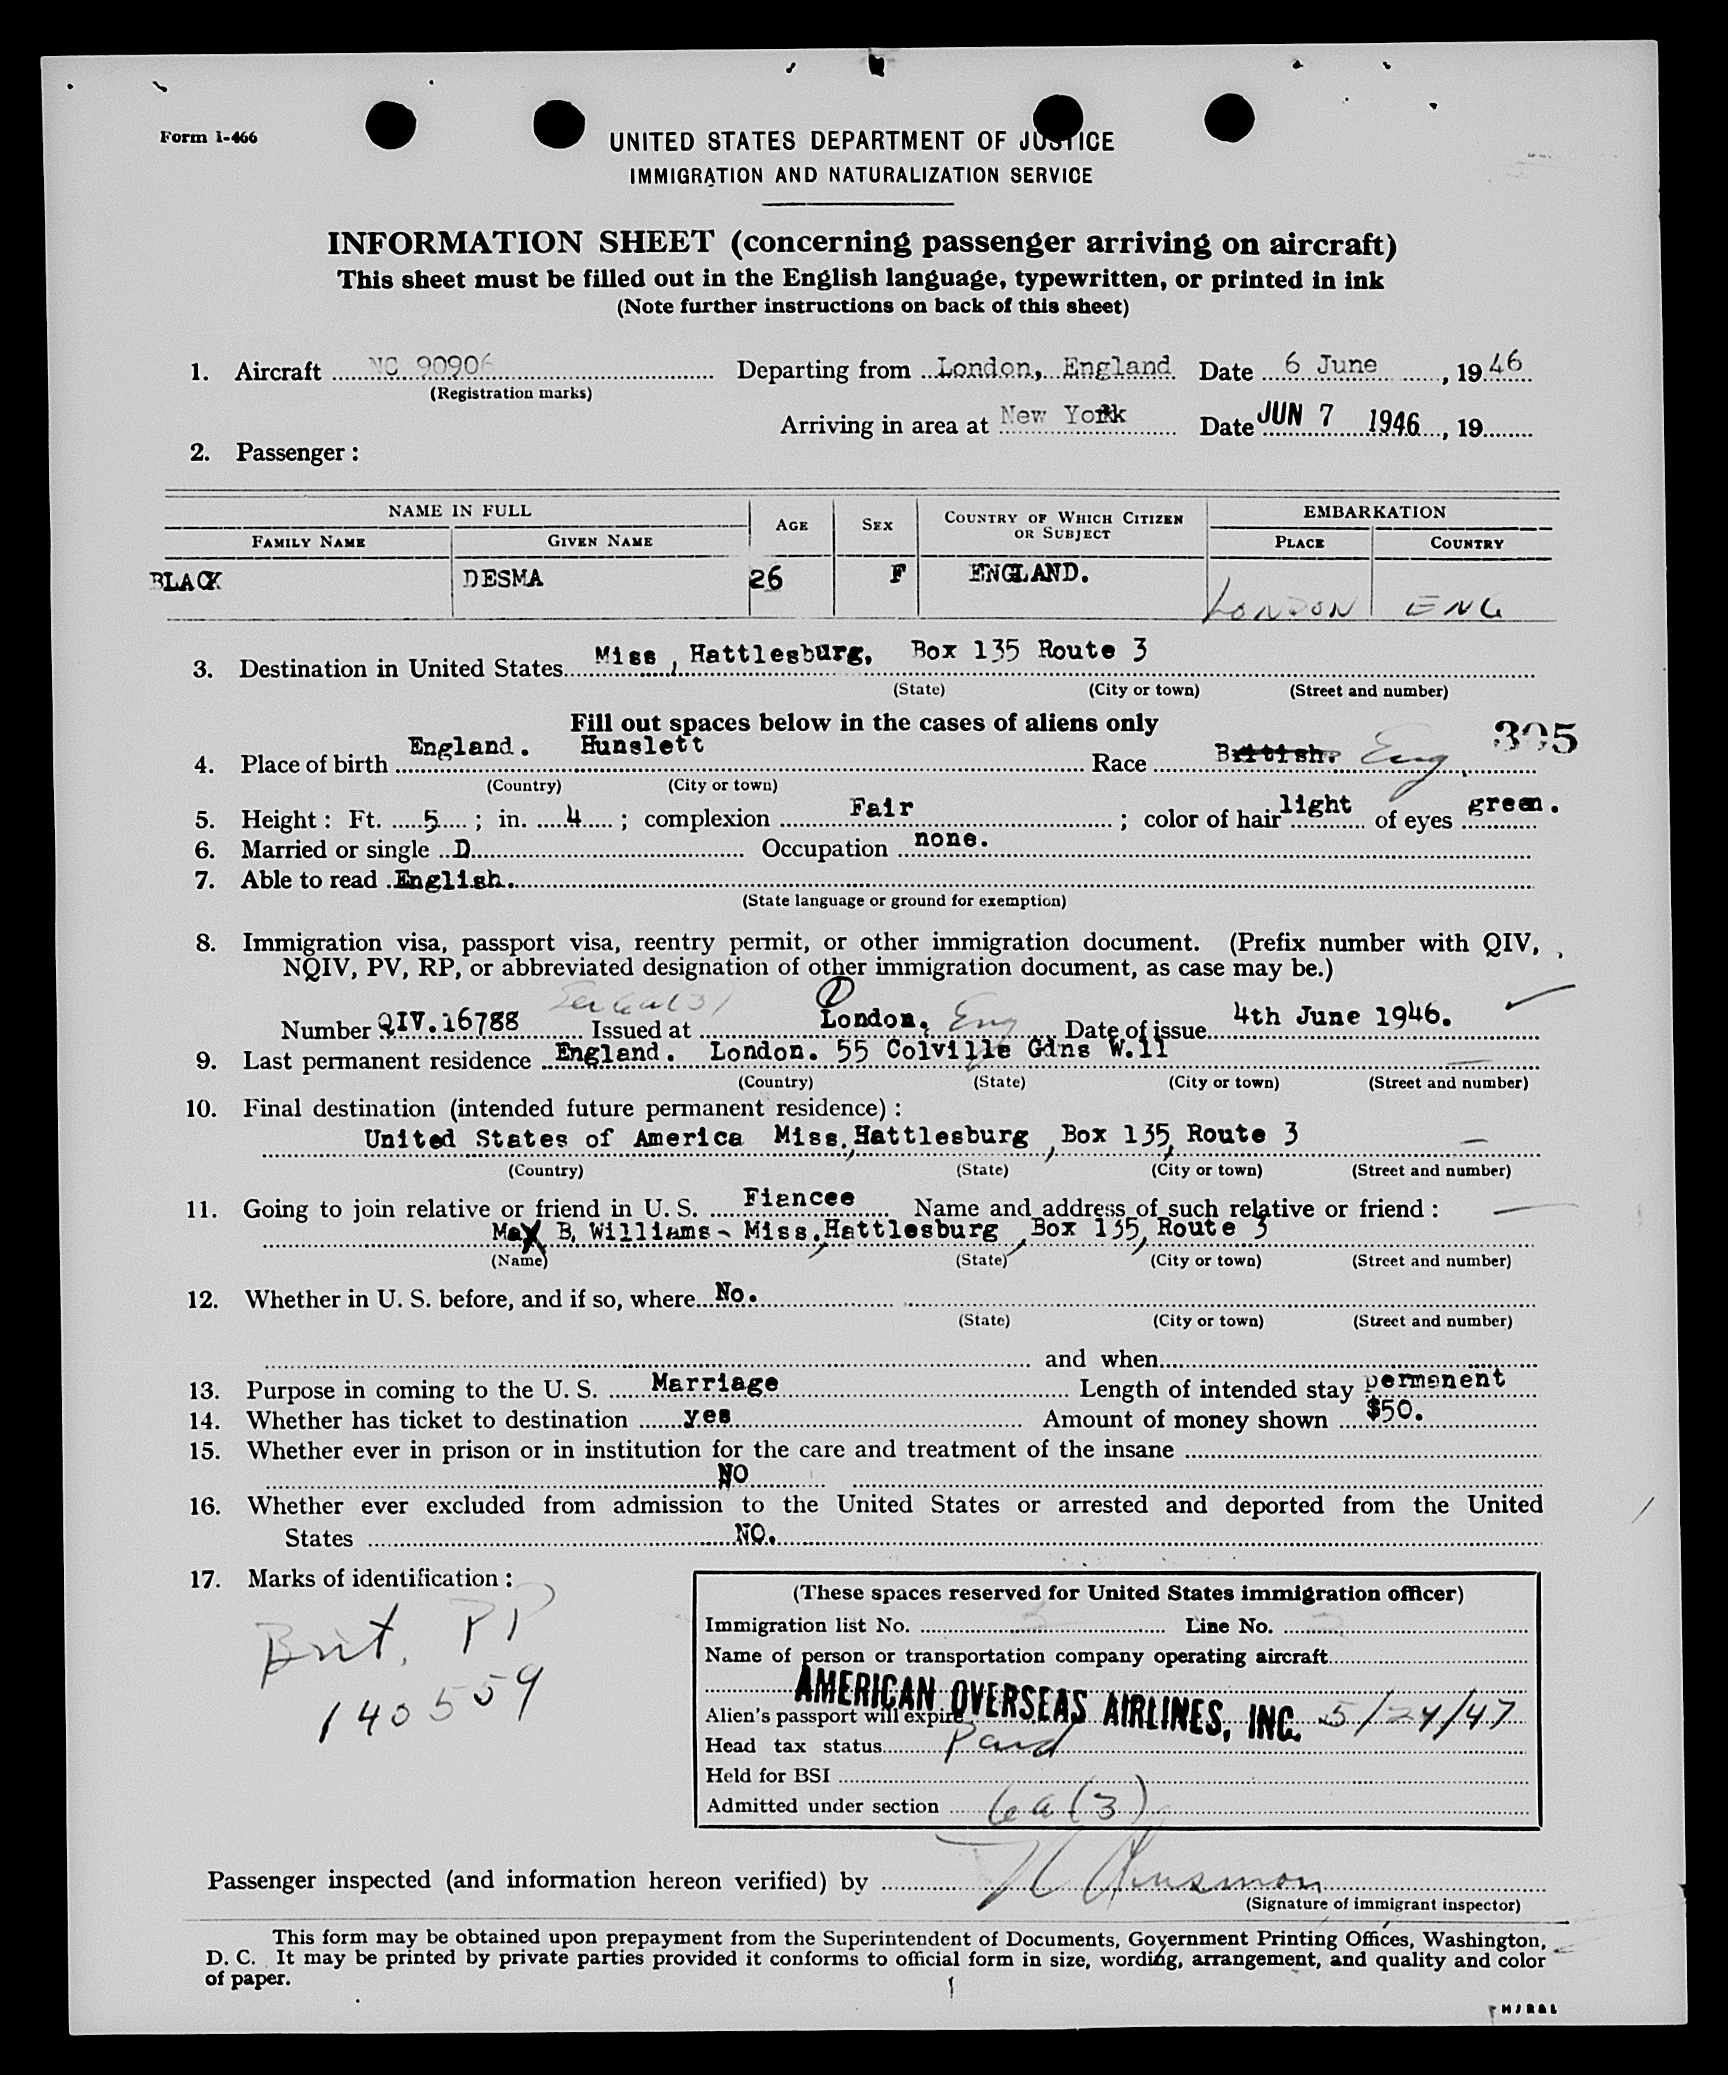 Form I-466
UNITED STATES DEPARTMENT OF JUSTICE
IMMIGRATION AND NATURALIZATION SERVICE
INFORMATION SHEET (concerning passenger arriving on aircraft)
This sheet must be filled out in the English language, typewritten, or printed in ink
(Note further instructions on back of this sheet)
1. Aircraft NC 90906 Departing from London, England Date 6 June, 1946
(Registration marks)
Arriving in area at New York Date JUN 7 1946, 19
2. Passenger:
NAME IN FULL AGE SEX COUNTRY OF WHICH CITIZEN OR SUBJECT EMBARKATION
FAMILY NAME GIVEN NAME PLACE COUNTRY
BLACK DESMA 26 F ENGLAND. LONDON ENG
3. Destination in United States Miss, Hattlesburg, Box 135 Route 3
(State) (City or town) (Street and number)
Fill out spaces below in the cases of aliens only
395
4. Place of birth England. Hunslett Race British. Eng
(Country) (City or town)
5. Height: Ft. 5; in. 4; complexion Fair; color of hair light of eyes green.
6. Married or single D Occupation none.
7. Able to read English.
(State language or ground for exemption)
8. Immigration visa, passport visa, reentry permit, or other immigration document. (Prefix number with QIV,
NQIV, PV, RP, or abbreviated designation of other immigration document, as case may be.)
Sec 6a(3)
Number QIV.16788 Issued at London, Eng Date of issue 4th June 1946.
9. Last permanent residence England. London. 55 Colville Gdns W.11
(Country) (State) (City or town) (Street and number)
10. Final destination (intended future permanent residence):
United States of America Miss, Hattlesburg, Box 135, Route 3
(Country) (State) (City or town) (Street and number)
11. Going to join relative or friend in U. S. Fiancee Name and address of such relative or friend:
Max B. Williams - Miss, Hattlesburg, Box 135, Route 3
(Name) (State) (City or town) (Street and number)
12. Whether in U. S. before, and if so, where No.
(State) (City or town) (Street and number)
and when
13. Purpose in coming to the U. S. Marriage Length of intended stay permenent
14. Whether has ticket to destination yes Amount of money shown $50.
15. Whether ever in prison or in institution for the care and treatment of the insane
NO
16. Whether ever excluded from admission to the United States or arrested and deported from the United
States NO.
17. Marks of identification:
Brit. PP
140559
(These spaces reserved for United States immigration officer)
Immigration list No. Line No.
Name of person or transportation company operating aircraft
AMERICAN OVERSEAS AIRLINES, INC.
Alien's passport will expire 5/24/47
Head tax status Paid
Held for BSI
Admitted under section 6a(3)
Passenger inspected (and information hereon verified) by
(Signature of immigrant inspector)
This form may be obtained upon prepayment from the Superintendent of Documents, Government Printing Offices, Washington,
D. C. It may be printed by private parties provided it conforms to official form in size, wording, arrangement, and quality and color
of paper.